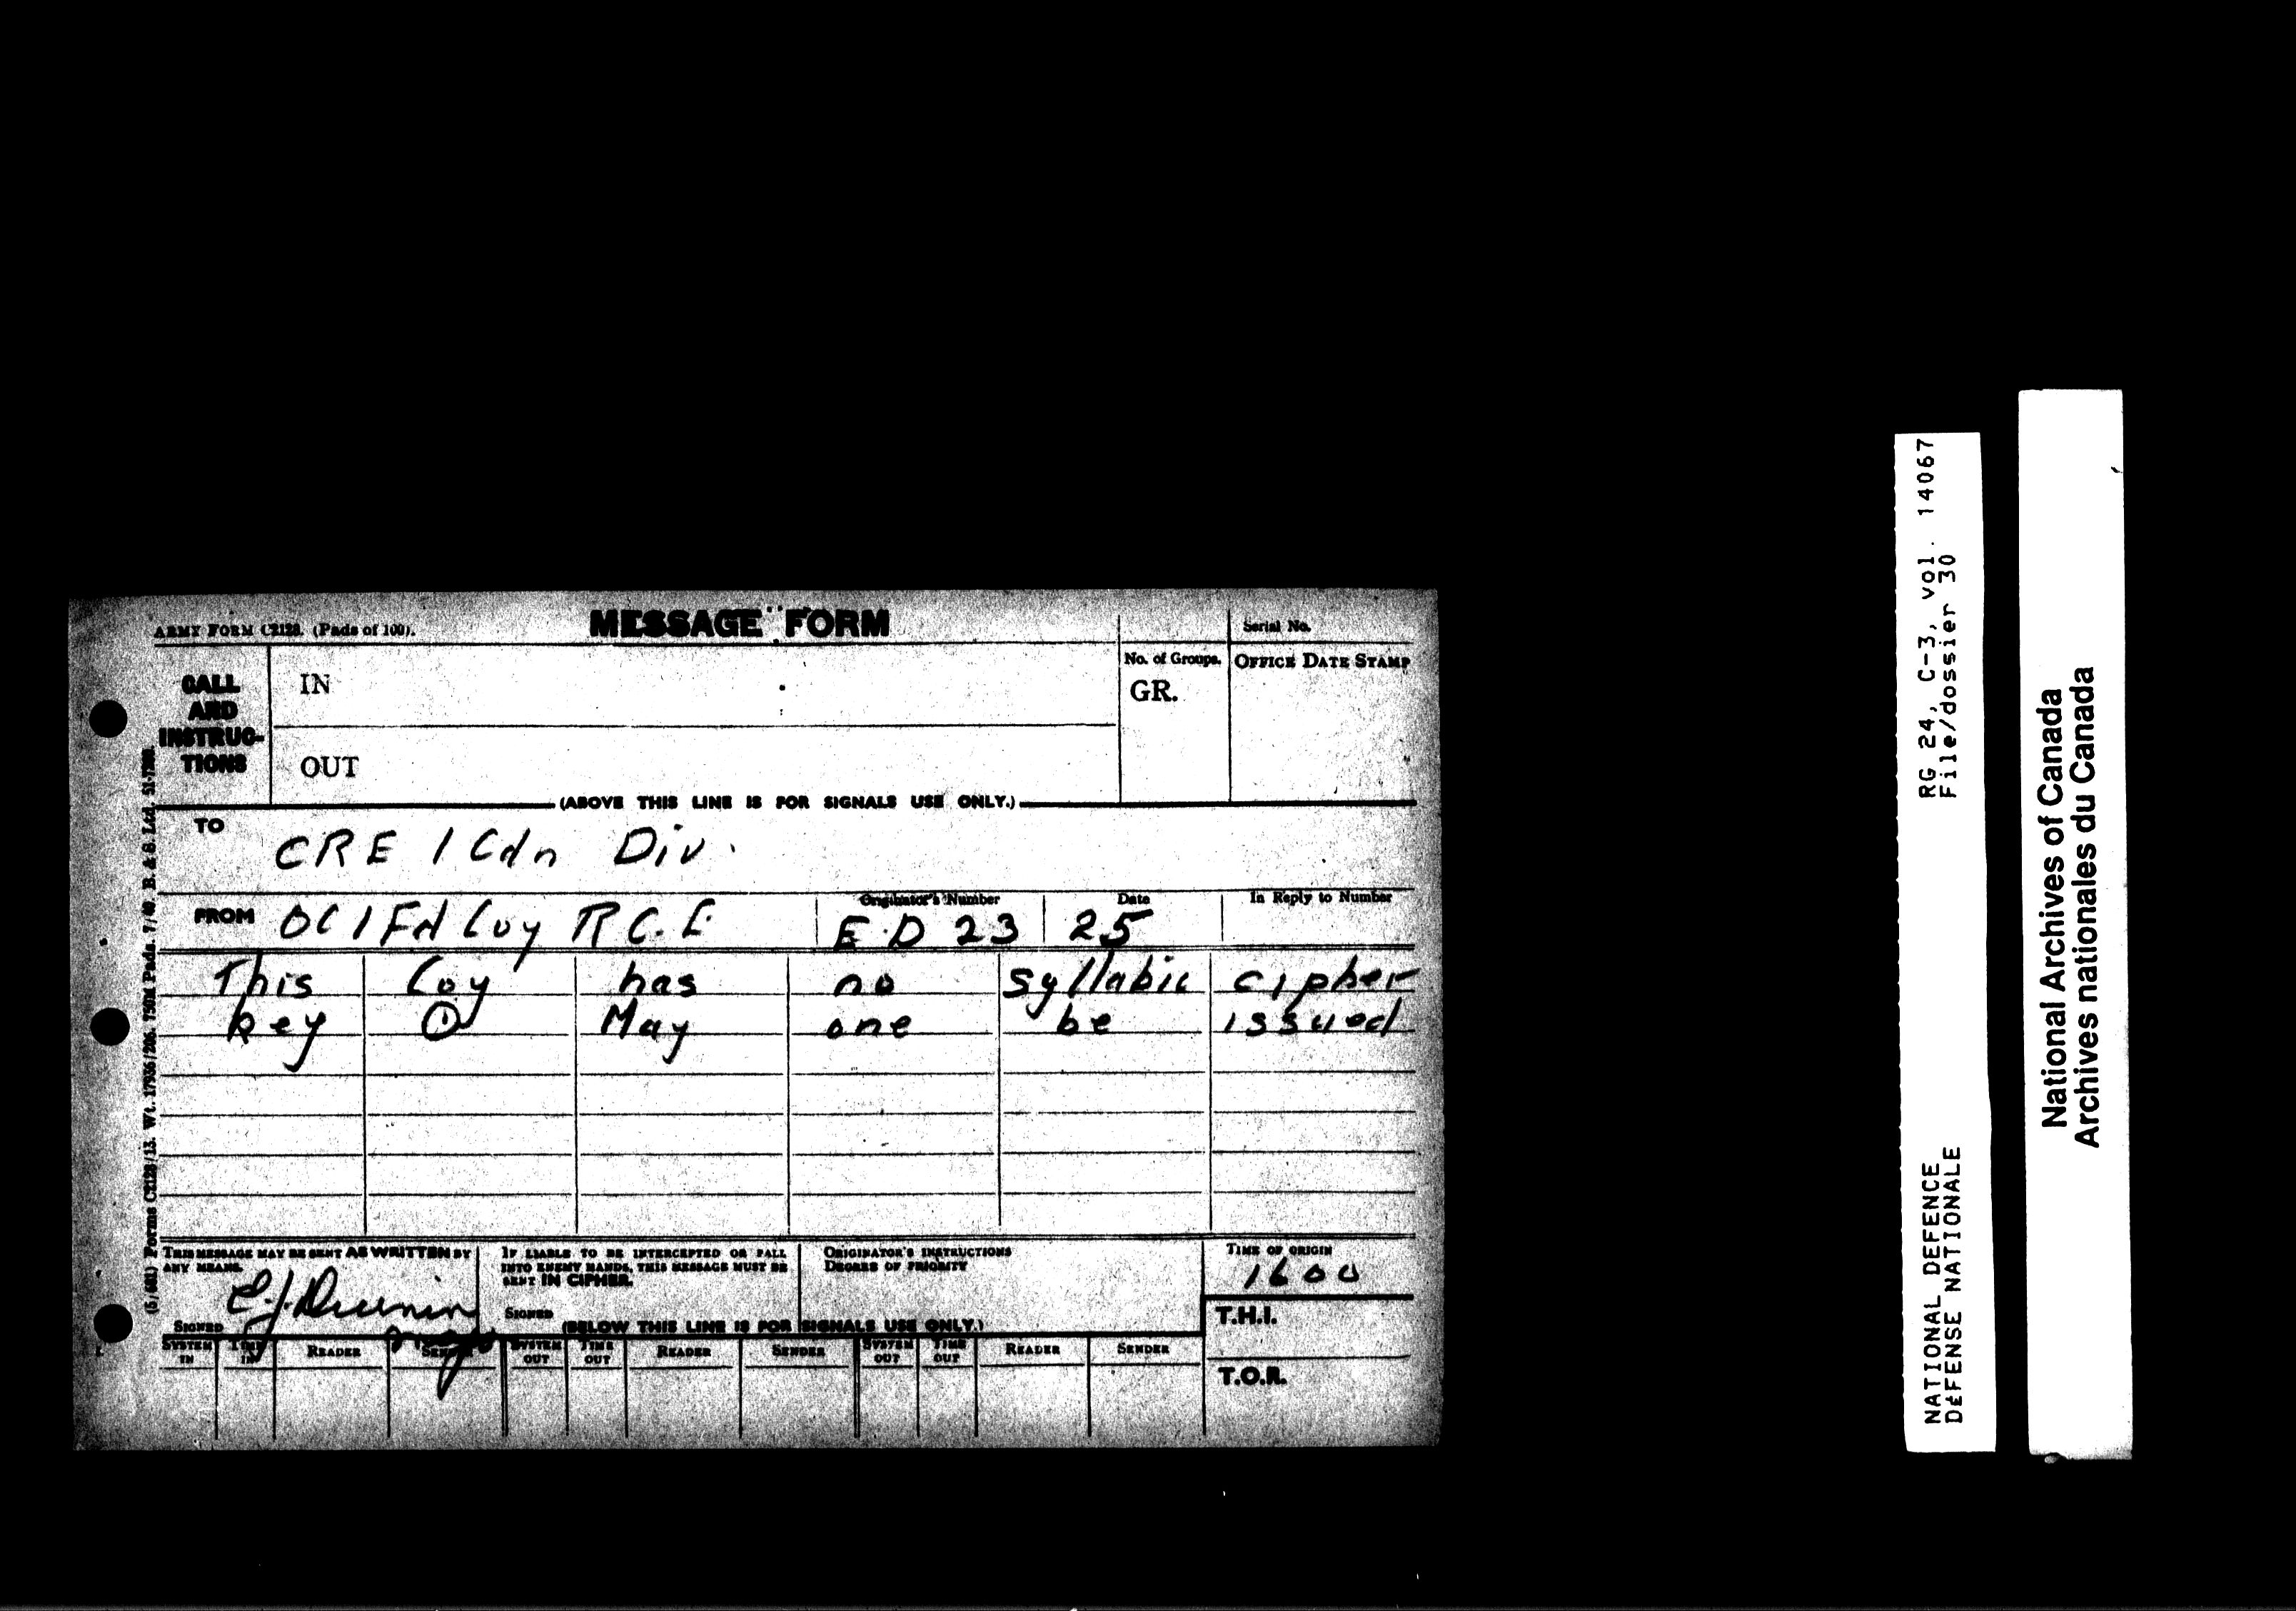 ARMY FORM C2128. (Pads of 100).
MESSAGE FORM
Serial No.
CALL AND INSTRUC-TIONS
IN
OUT
No. of Groups.
GR.
OFFICE DATE STAMP
(ABOVE THIS LINE IS FOR SIGNALS USE ONLY.)
TO
CRE 1 Cdn Div.
FROM OC 1 Fd Coy R.C.E
Originator's Number
E.D 23
Date
25
In Reply to Number
This Coy has no syllabic cipher
key ① May one be issued
THIS MESSAGE MAY BE SENT AS WRITTEN BY
ANY MEANS.
SIGNED
IF LIABLE TO BE INTERCEPTED OR FALL
INTO ENEMY HANDS, THIS MESSAGE MUST BE
SENT IN CIPHER.
SIGNED
ORIGINATOR'S INSTRUCTIONS
DEGREE OF PRIORITY
TIME OF ORIGIN
1600
T.H.I.
T.O.R.
(BELOW THIS LINE IS FOR SIGNALS USE ONLY.)
SYSTEM IN TIME IN READER SENDER SYSTEM OUT TIME OUT READER SENDER SYSTEM OUT TIME OUT READER SENDER
Forms C2128/13. Wt. 17936/206. 750M Pads. 7/40 B. & S. Ltd.
RG 24, C-3, vol. 14067
File/dossier 30
NATIONAL DEFENCE
DÉFENSE NATIONALE
National Archives of Canada
Archives nationales du Canada